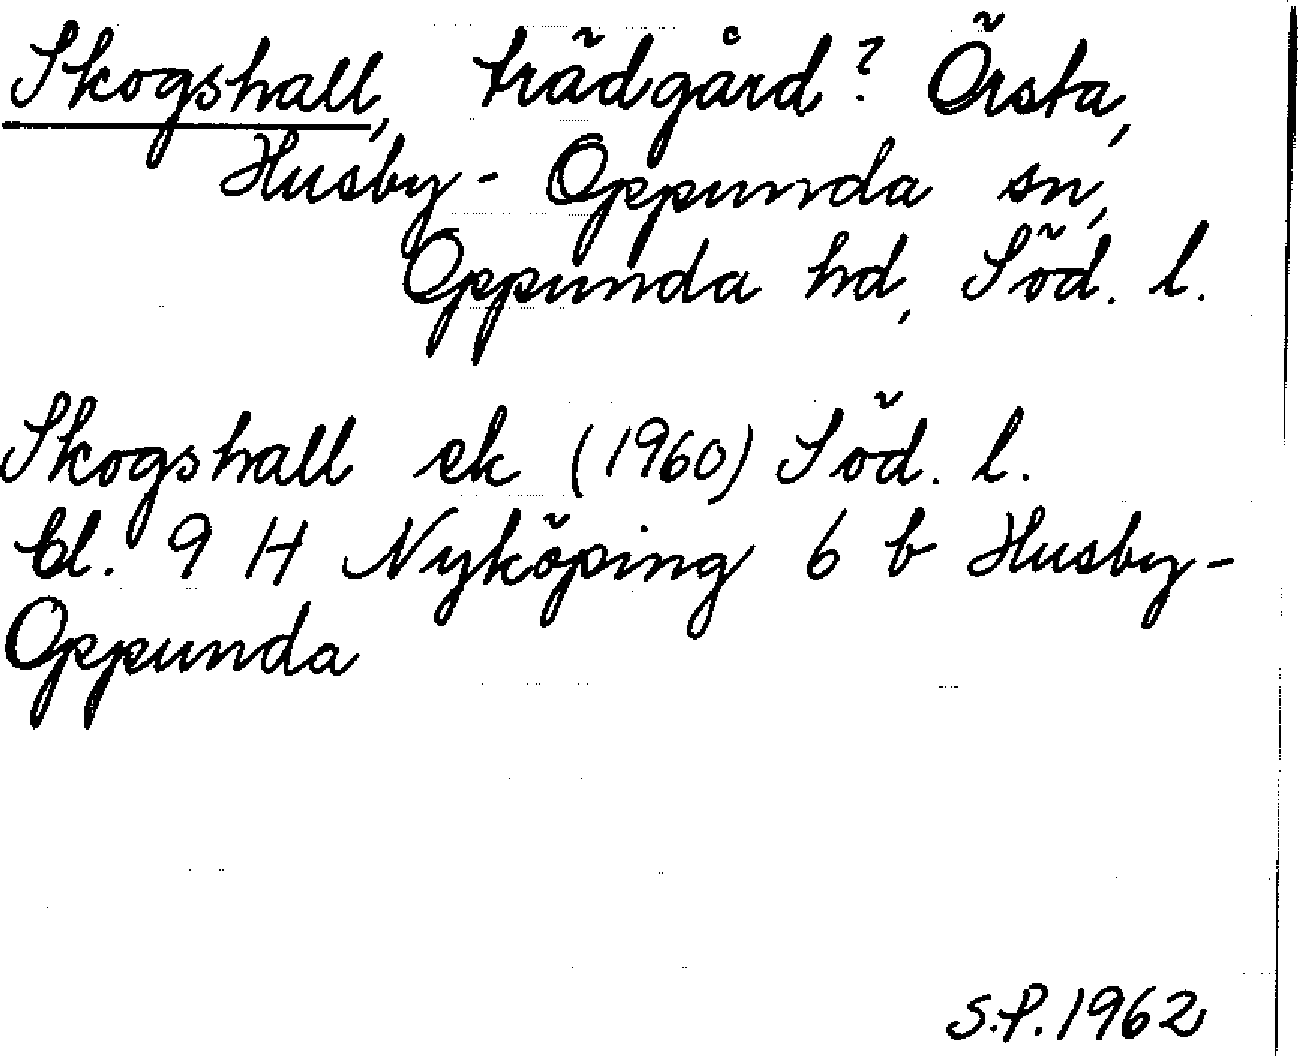 Skogshall, trädgård? Örsta,
Husby-Oppunda sn,
Oppunda hd, Söd. l.
Skogshall ek (1960) Söd. l.
Bl. 9 H Nyköping 6 b Husby-
Oppunda
S.P. 1962